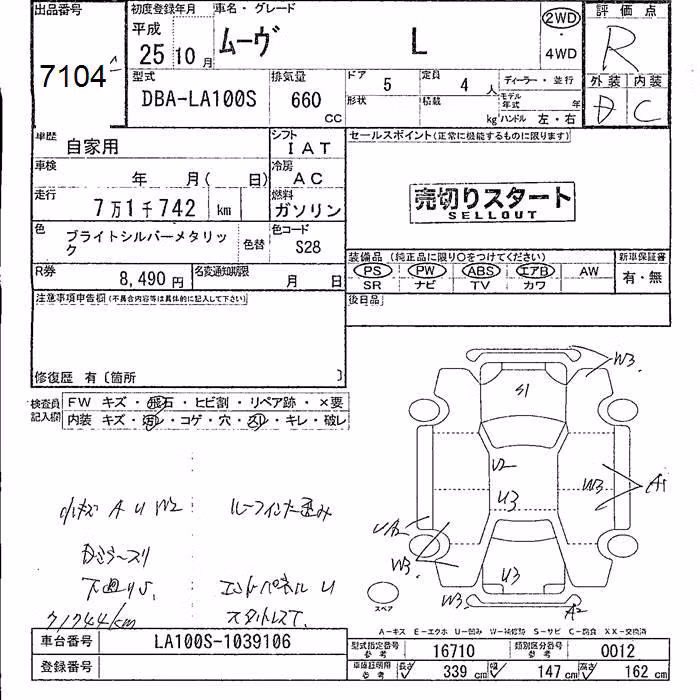 出品番号
7104
初度登録年月
平成
25 10月
車名・グレード
ムーヴ L
2WD
・
4WD
評価点
R
外装 内装
D C
型式
DBA-LA100S
排気量
660
CC
ドア 5
定員 4人
形状
積載 kg
ディーラー・並行
モデル年式 年
ハンドル 左・右
車歴
自家用
シフト
IAT
車検
年 月( 日)
冷房
AC
走行
7万1千742 km
燃料
ガソリン
色
ブライトシルバーメタリック
色替
色コード
S28
R券
8,490円
名変通知期限
月 日
セールスポイント(正常に機能するものに限ります)
売切りスタート
SELLOUT
装備品 (純正品に限り○をつけてください)
PS PW ABS エアB AW
SR ナビ TV カワ
新車保証書
有・無
後日品
注意事項申告欄(不具合内容等は具体的に記入して下さい)
修復歴 有〔箇所 〕
検査員
記入欄
FW キズ・飛石・ヒビ割・リペア跡・×要
内装 キズ・汚レ・コゲ・穴・スレ・キレ・破レ
小キズ A U W2
ルーフインナー歪み
下廻りS.
エンドパネル U
71744km
W3
S1
U2
U3
W3
A1
W3
U3
W3
A2
スペア
A-キズ E-エクボ U-凹み W-補修跡 S-サビ C-腐食 XX-交換済
車台番号
LA100S-1039106
登録番号
型式指定番号
参考
16710
類別区分番号
参考
0012
車庫証明用
参考
長さ 339 cm
幅 147 cm
高さ 162 cm